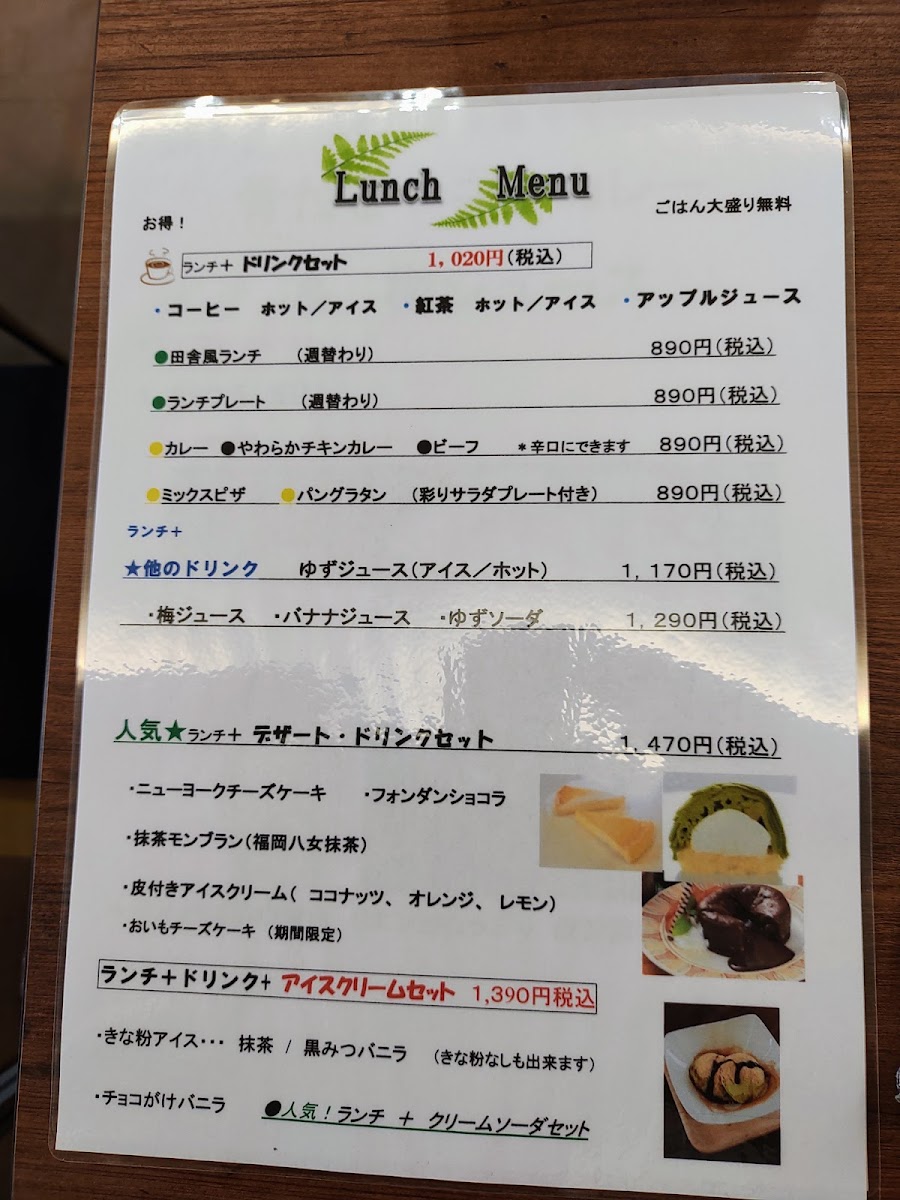 Lunch Menu
ごはん大盛り無料
お得！
ランチ＋ ドリンクセット 1,020円(税込)
・コーヒー ホット／アイス ・紅茶 ホット／アイス ・アップルジュース
●田舎風ランチ (週替わり) 890円(税込)
●ランチプレート (週替わり) 890円(税込)
●カレー ●やわらかチキンカレー ●ビーフ ＊辛口にできます 890円(税込)
●ミックスピザ ●パングラタン (彩りサラダプレート付き) 890円(税込)
ランチ＋
★他のドリンク ゆずジュース(アイス／ホット) 1,170円(税込)
・梅ジュース ・バナナジュース ・ゆずソーダ 1,290円(税込)
人気★ランチ＋ デザート・ドリンクセット 1,470円(税込)
・ニューヨークチーズケーキ ・フォンダンショコラ
・抹茶モンブラン(福岡八女抹茶)
・皮付きアイスクリーム( ココナッツ、オレンジ、レモン)
・おいもチーズケーキ (期間限定)
ランチ＋ドリンク+ アイスクリームセット 1,390円税込
・きな粉アイス・・・ 抹茶 / 黒みつバニラ (きな粉なしも出来ます)
・チョコがけバニラ ●人気！ランチ ＋ クリームソーダセット